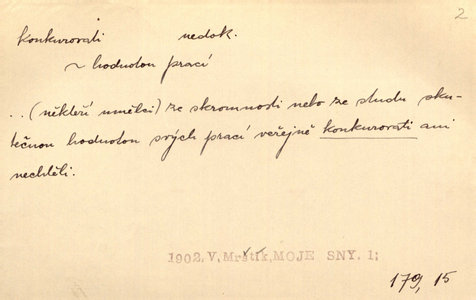 2
konkurovati nedok.
~ hodnotou prací
..(někteří umělci) ze skromnosti nebo ze studu sku-
tečnou hodnotou svých prací veřejně konkurovati ani
nechtěli.
1902, V, Mrštík, MOJE SNY. 1;
179, 15